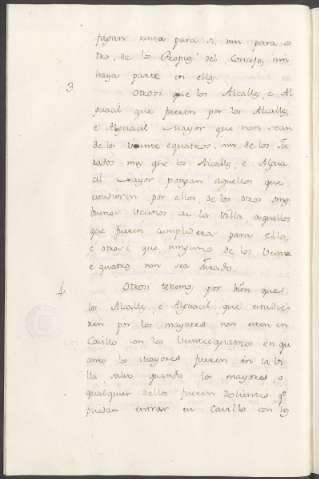 fagan renta para si, nin para o
tro, de los Propios del Concejo, nin
haya parte en ello.
3 Otrosi que los Alcalles, e Al
guacil que fueren por los Alcalles,
e Alguacil Mayor que non sean
de los veinte equatros, nin de los Ju
rados mas que los Alcalles, e Algua
cil Mayor pongan aquellos que
por ellos, de los otros omes
buenos vecinos de la Villa aquellos
que fueren cumplidera para ello,
e otrosi que ninguno de los veinte
e quatro non sea Jurado.
4 Otrosi tenemos por bien que
los Alcalles, e Alguacil que estuvie
ren por los mayores non entren en
Cavillo con los Veintecquatros en qu
anto los Mayores fueren en la Vi
lla salvo quando los mayores o
qualquier dellos fueren dolientes qe
puedan entrar en Cavillo con los